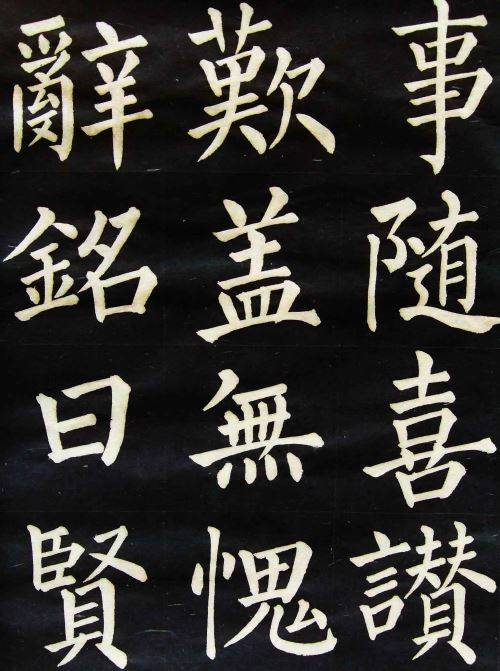 事随喜讚
歎盖無愧
辭銘曰賢